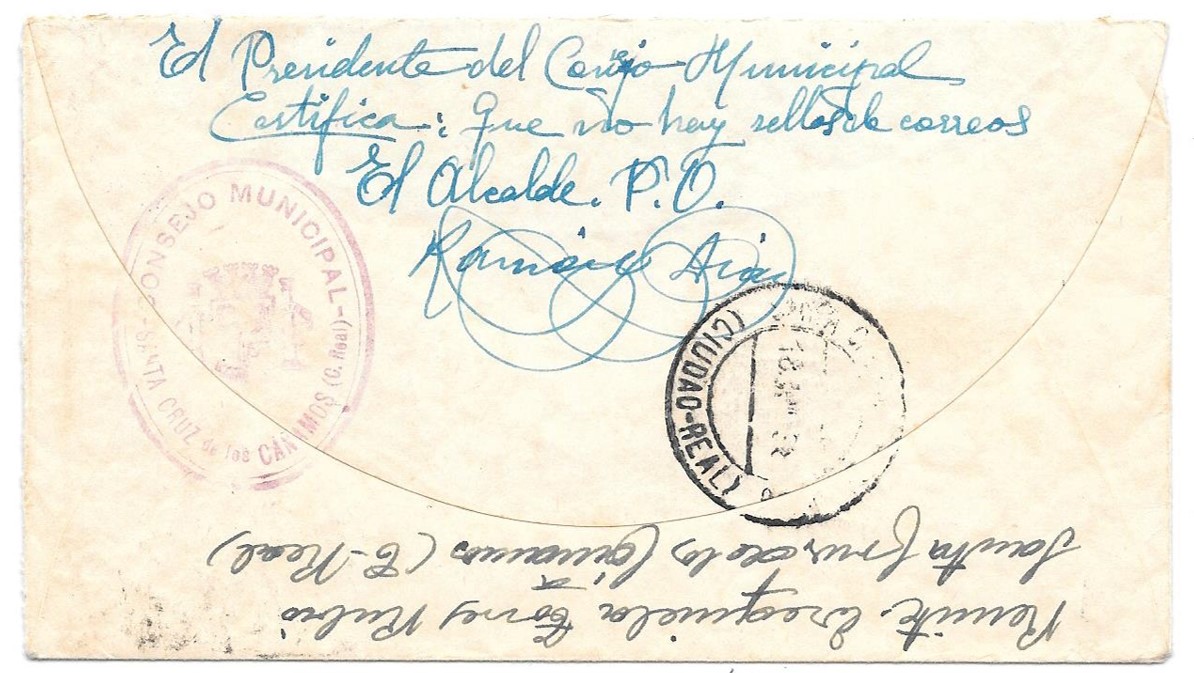 El Presidente del Consejo Municipal
Certifica: que no hay sellos de correos
El Alcalde. P.O.
Ramírez
CONSEJO MUNICIPAL-(C. Real)
-SANTA CRUZ de los CÁÑAMOS
SANTA C
(CIUDAD-REAL)
18
Remite. Ezequiela Torres Rubio
Santa Cruz de los Cáñamos (C-Real)